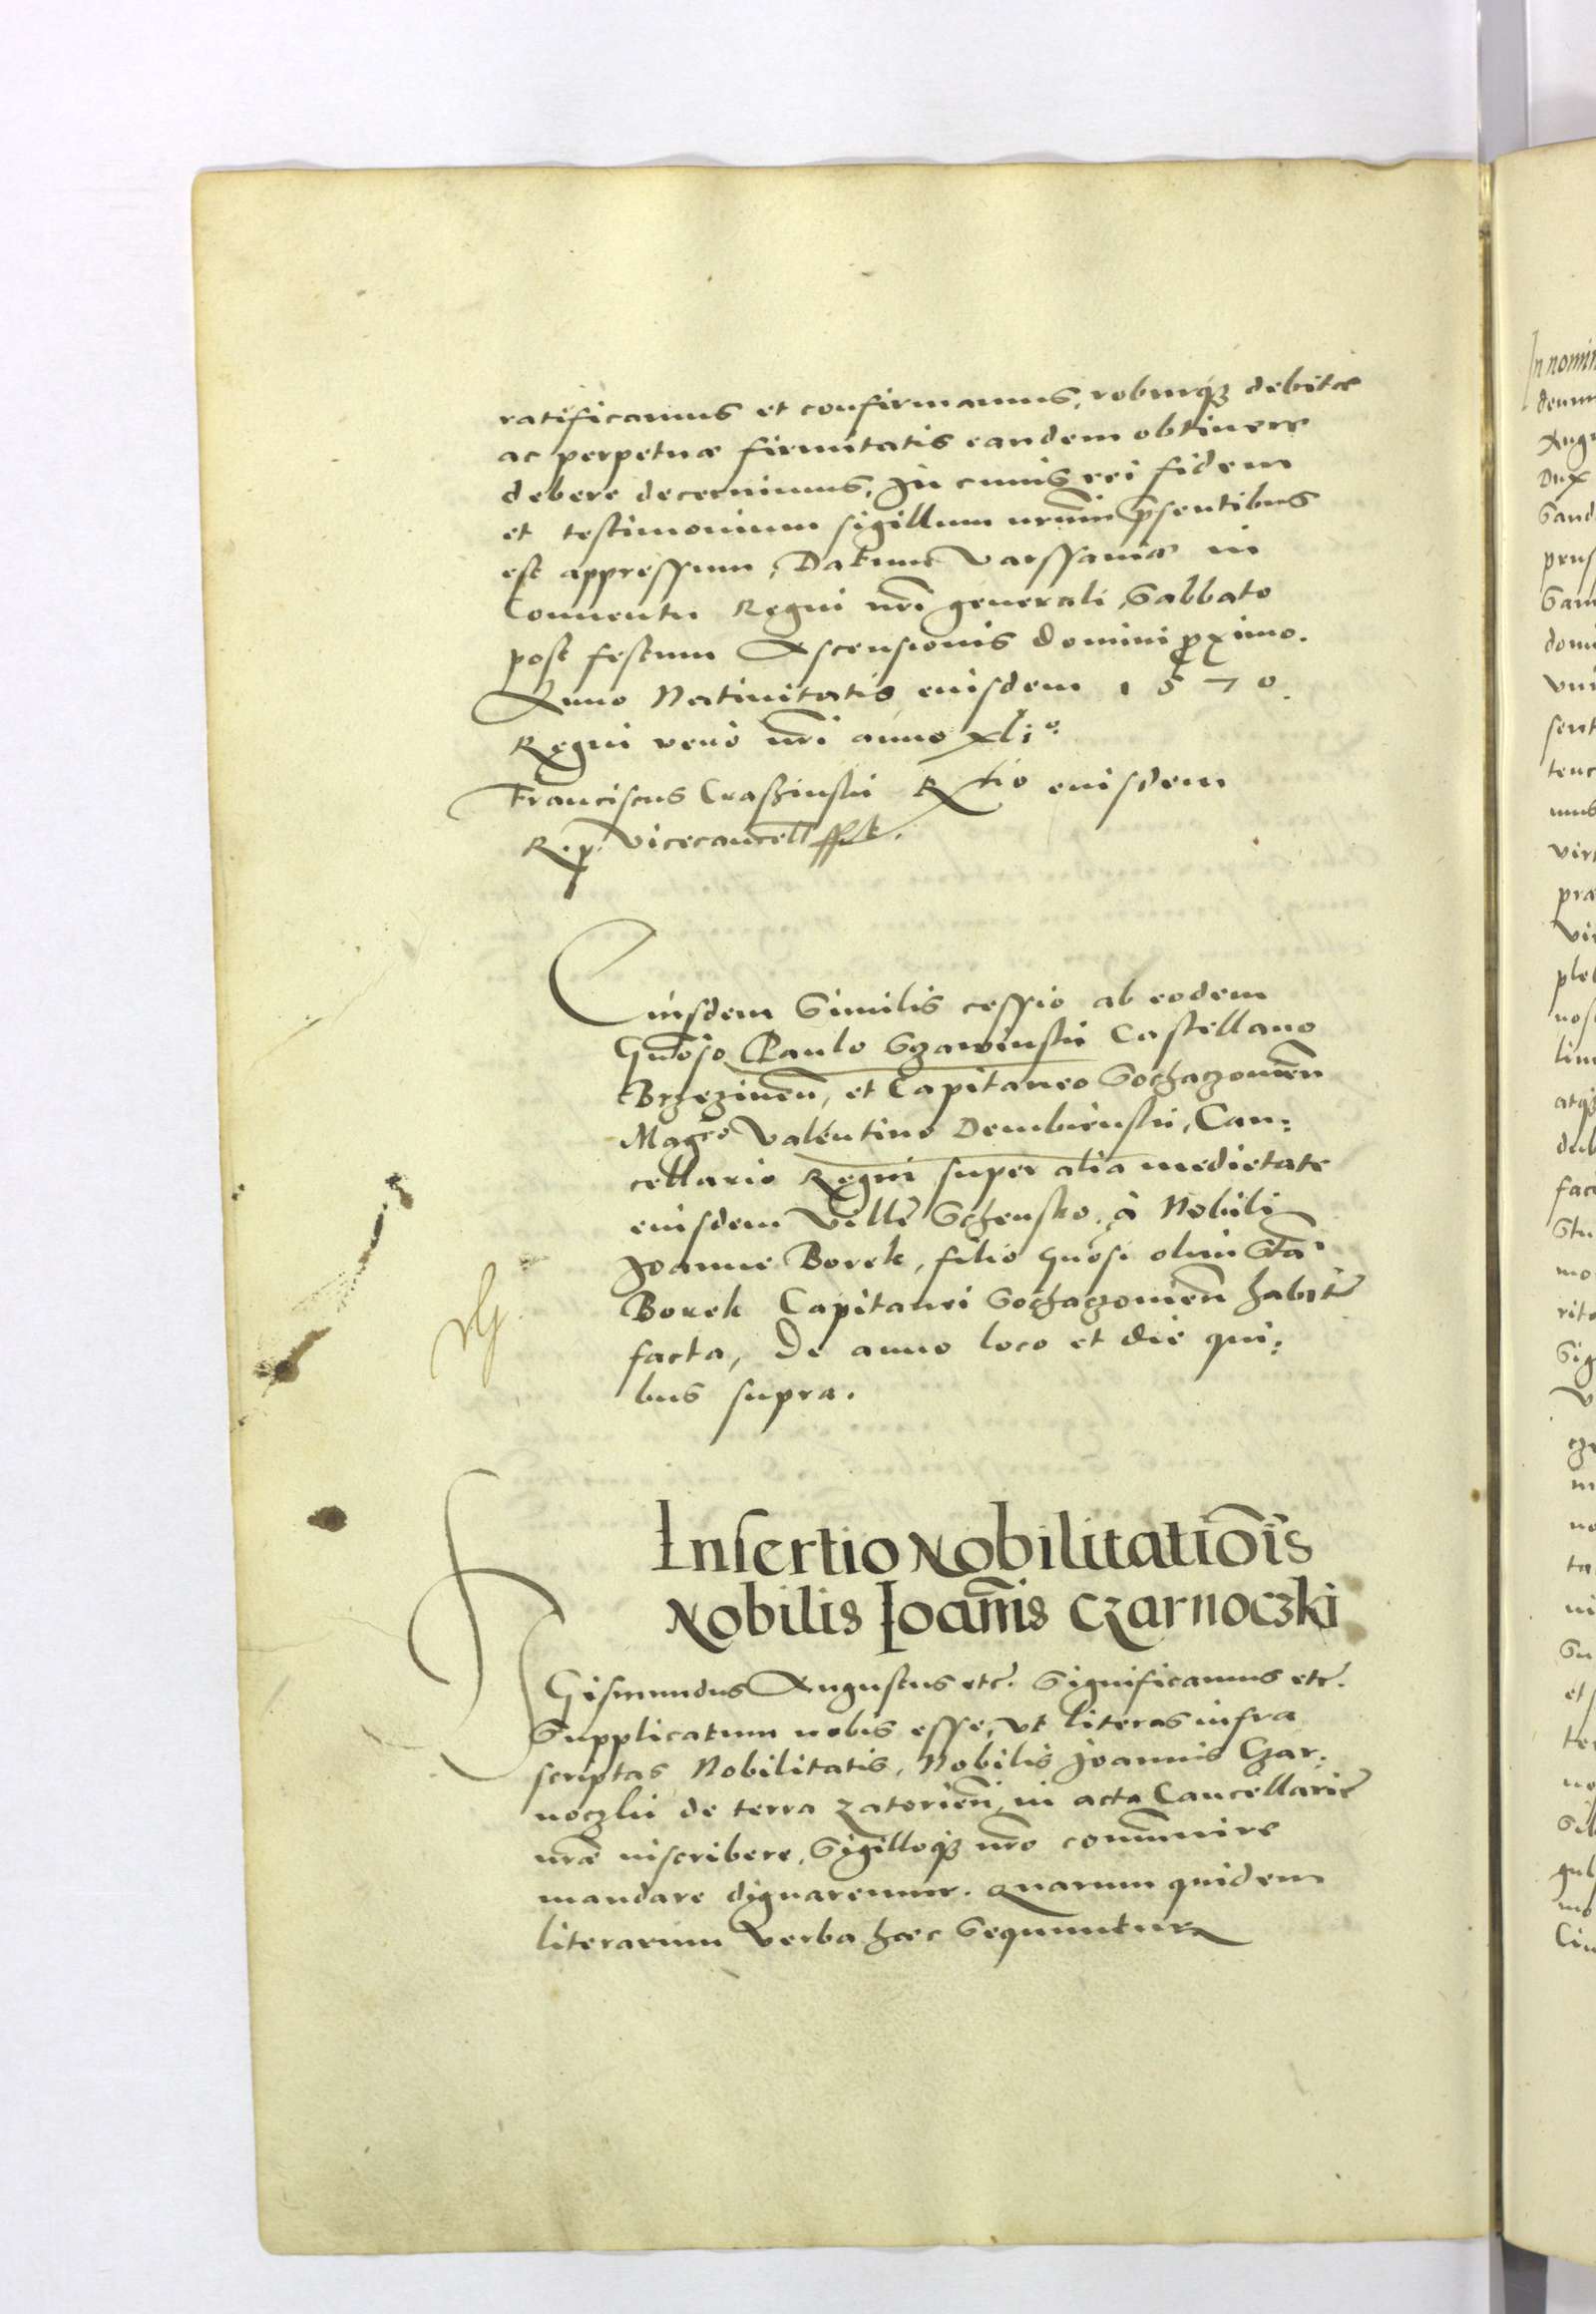 ratificamus et confirmamus, roburq3 debitæ
ac perpetuæ firmitatis eandem obtinere
debere decernimus. In cuius rei fidem
et testimonium sigillum nrum pñsentibus
est appressum, Datum Varssaviæ in
Conventu Regni nri generali, Sabbato
post festum Ascensionis domini proximo.
Anno Nativitatis eiusdem 1570.
Regni vero nri anno xli°.
Franciscus Craszinski Rtio eiusdem
R. p. Vicecancell
Eiusdem Similis cessio ab eodem
Gnoso Paulo Szawinski Castellano
Brzezinen, et Capitaneo Sochaczovien
Magco Valentino Dembienski, Can:
cellario Regni super alia medietate
eiusdem Villę à Nobili
Joanne Borek, filio gnosi olim Sta:
Borek Capitanei Sochaczovien habitę
facta, De anno loco et die qui:
bus supra.
Insertio Nobilitatiōis
Nobilis Ioannis Czarnoczki
Sigismundus Augustus etc. Significamus etc.
Supplicatum nobis esse, vt literas infra
scriptas Nobilitatis, Nobilis Joannis Czar:
noczki de terra Zatorien, in acta Cancellarię
nræ inscribere, Sigilloq3 nro communire
mandare dignaremur. Quarum quidem
literarum verba hæc Sequuntur
In nomin
deum
Augu
Dux
Sand
prus
Sam
domi
vni
sent
tenc
mus
virt
præ
vir
pleb
nost
lim
atq3
dub
fac
Stu
mo
rita
Sig
V
cze
m
no
ta
ni
Su
et
ter
no
Sib
gul
mo
Cu